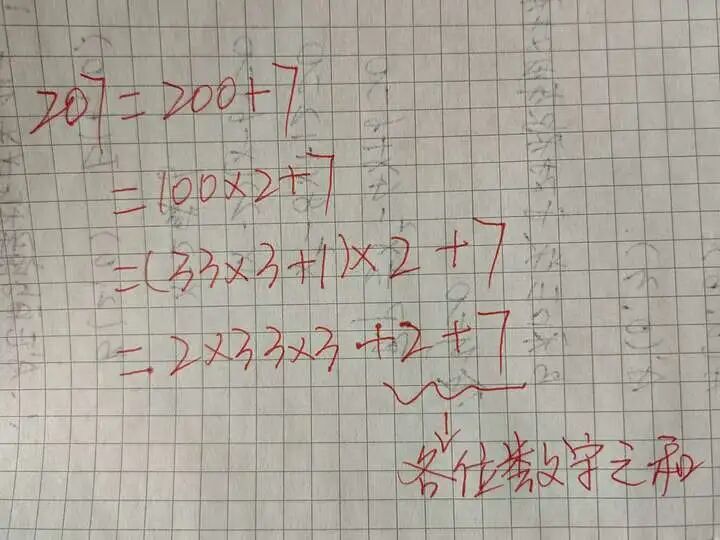 207=200+7
=100×2+7
=(33×3+1)×2+7
=2×33×3+2+7
↓
各位数字之和